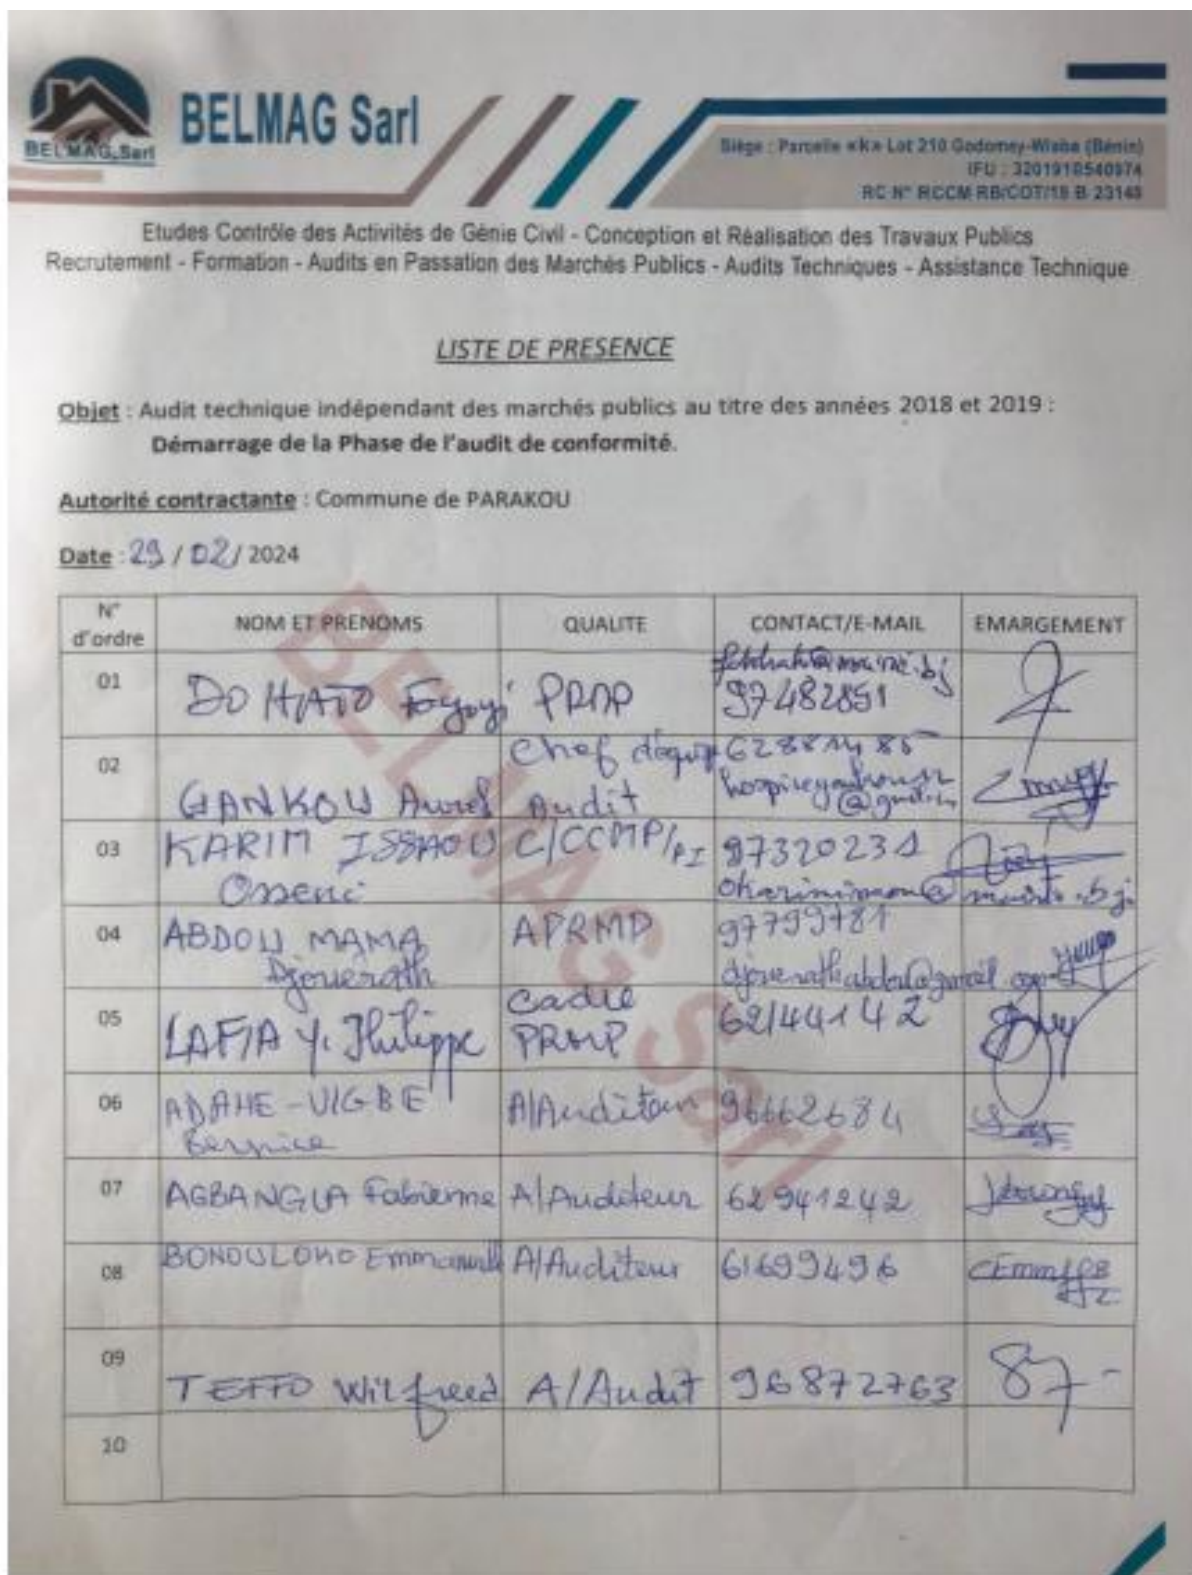 BELMAG Sarl
BELMAG Sarl
Siège : Parcelle «k» Lot 210 Godomey-Wlaba (Bénin)
IFU : 3201910540974
RC N° RCCM RB/COT/18 B 23148
Etudes Contrôle des Activités de Génie Civil - Conception et Réalisation des Travaux Publics
Recrutement - Formation - Audits en Passation des Marchés Publics - Audits Techniques - Assistance Technique
LISTE DE PRESENCE
Objet : Audit technique indépendant des marchés publics au titre des années 2018 et 2019 :
Démarrage de la Phase de l'audit de conformité.
Autorité contractante : Commune de PARAKOU
Date : 29 / 02 / 2024
N° d'ordre NOM ET PRENOMS QUALITE CONTACT/E-MAIL EMARGEMENT
01 DOHATO PRMP 97482851
02 GANKOU Aurel Chef d'équipe Audit
03 KARIM ISSAOU Osseni C/CCMP/PI 97320231
04 ABDOU MAMA Djouerath APRMP 97799781
05 LAFIA Y. Philippe cadre PRMP 62144142
06 ADAHE-VIGBE Bernice A/Auditeur 96662684
07 AGBANGLA Fabienne A/Auditeur 62941242
08 Emmanuelle A/Auditeur 61699496
09 TEFFO Wilfreed A/Audit 96872763
10
BELMAG Sarl